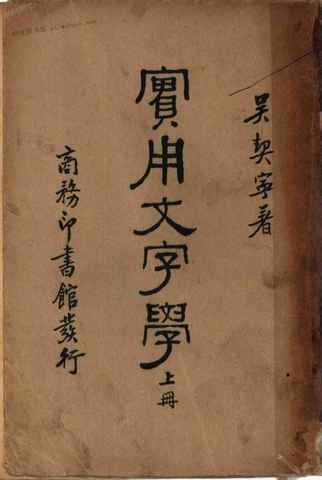 吴契寧著
實用文字學
上冊
商務印書館發行